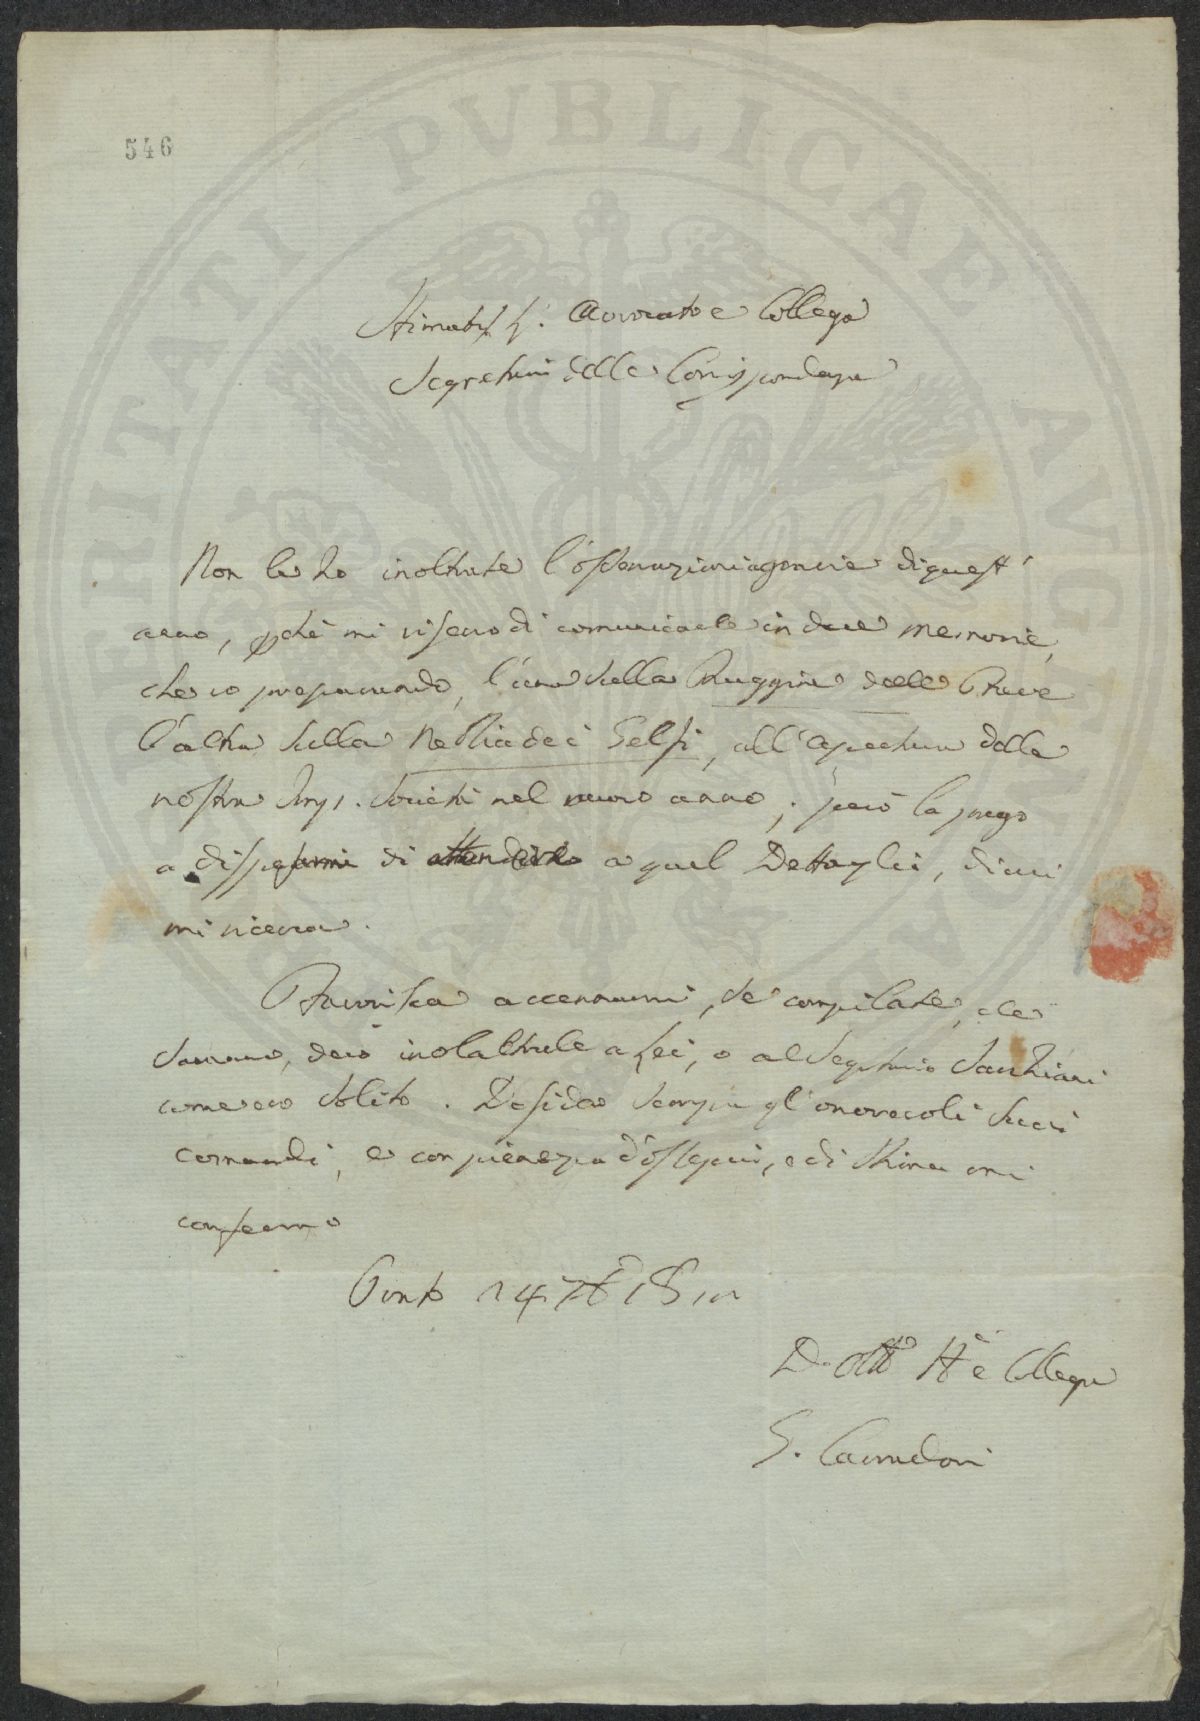 546
Stimatis. S. Avvocato e Collega
Segretario delle Corrispondenze
Non le ho inoltrate l'osservazioni agrarie di quest'
anno, pché mi riservo di comunicarle in due memorie,
che vo preparando, l'una sulla Ruggine delle Biade
l'altra sulla Nebbia dei Gelsi, all'apertura della
nostra Imp. Società nel nuovo anno; però la prego
a dispensarmi di attenderlo a quel Dettaglio, di cui
mi ricerca.
Favorisca accennarmi, se compilate, che
saranno, devo inoltrarle a Lei, o al Segretario Sarchiani
come ero solito. Desidero sempre gl'onorevoli suoi
comandi, e con pienezza d'ossequio, e di stima mi
confermo
Prato 14 7bre 18
D. mo e Collega
G. Carradori